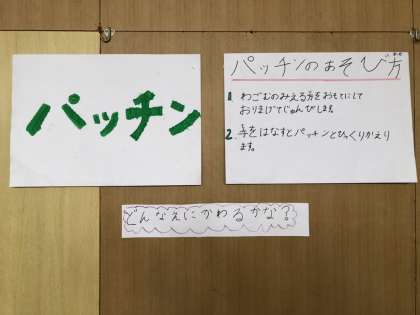 パッチン
パッチンのあそび方
1. わごむのみえる方をおもてにして
おりまげてじゅんびします。
2. 手をはなすとパッチンとひっくりかえり
ます。
どんなえにかわるかな?